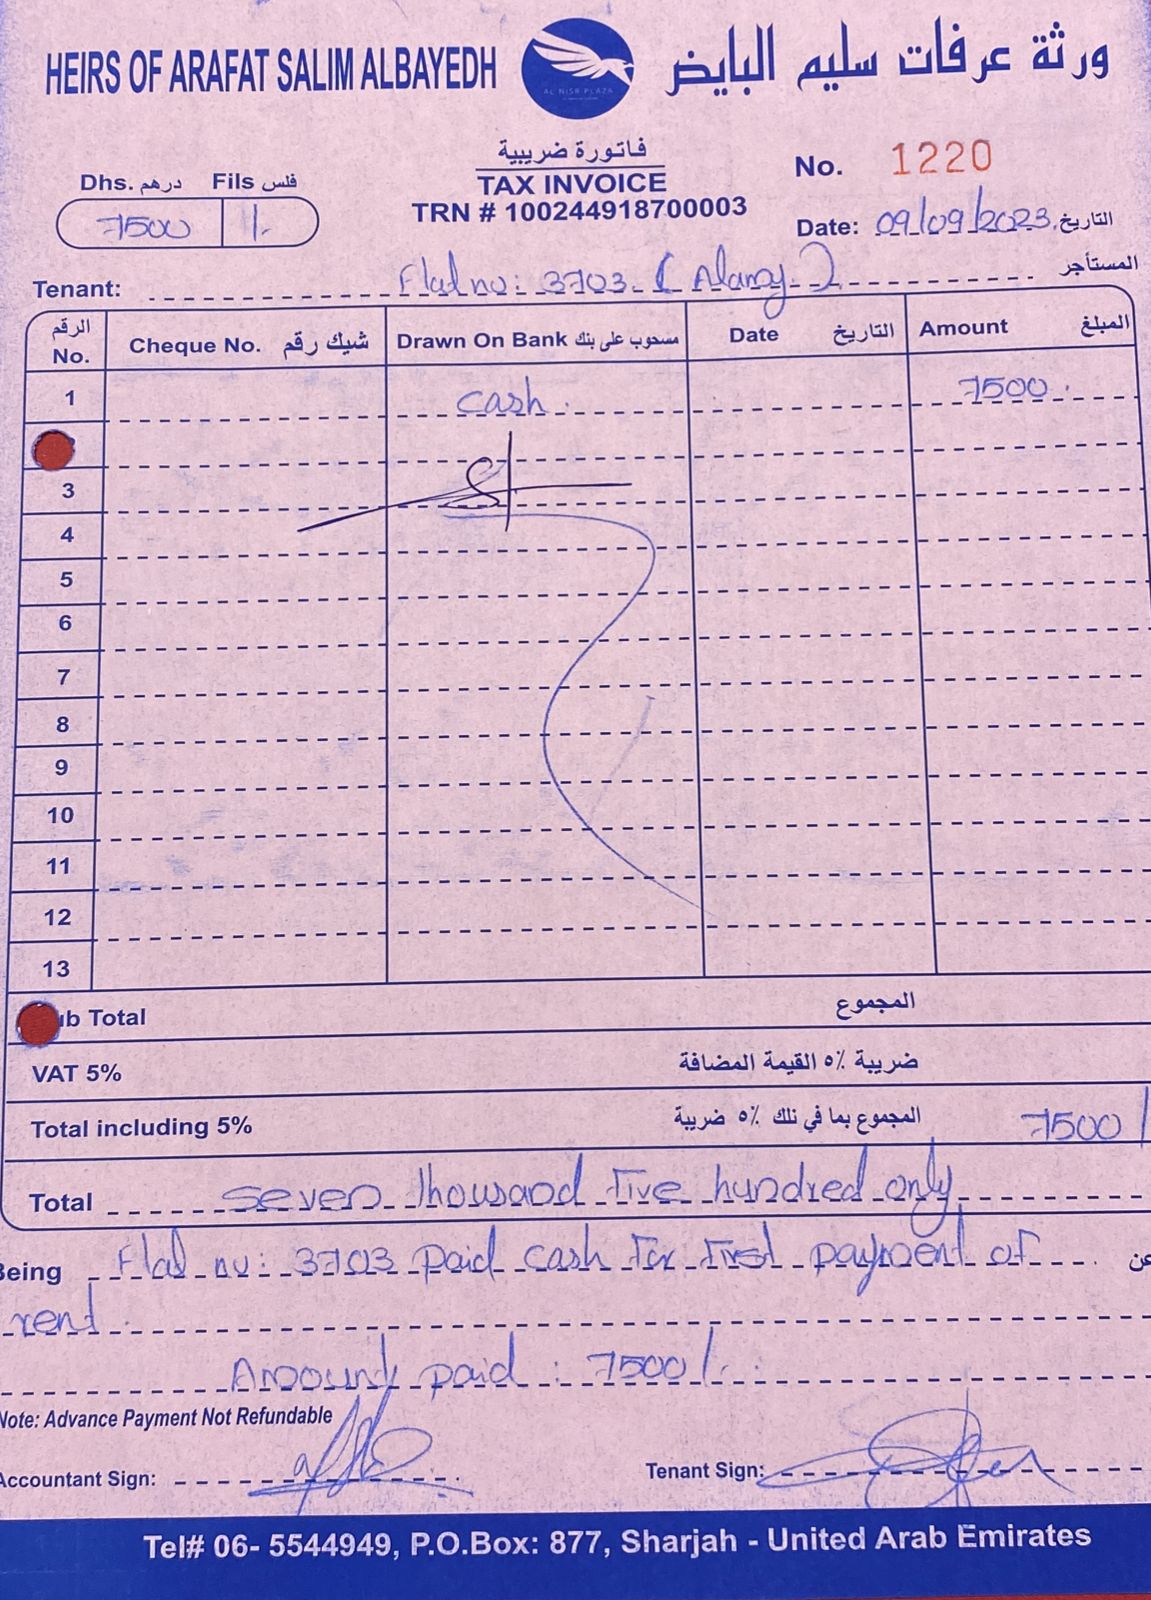 HEIRS OF ARAFAT SALIM ALBAYEDH
ورثة عرفات سليم البايض
AL NISR PLAZA
فاتورة ضريبية
TAX INVOICE
TRN # 100244918700003
No. 1220
Dhs. درهم Fils فلس
7500 /.
Date: 09/09/2023 التاريخ
Tenant: Flat no: 3703 ( Alamy ) المستأجر
الرقم No. Cheque No. شيك رقم Drawn On Bank مسحوب على بنك Date التاريخ Amount المبلغ
1 cash 7500
3
4
5
6
7
8
9
10
11
12
13
ub Total المجموع
VAT 5% ضريبة ٥٪ القيمة المضافة
Total including 5% المجموع بما في نلك ٥٪ ضريبة 7500/
Total seven Thousand Five hundred only
Being Flat no: 3703 paid cash for first payment of عن
rent
Amount paid : 7500/.
Note: Advance Payment Not Refundable
Accountant Sign: Tenant Sign:
Tel# 06- 5544949, P.O.Box: 877, Sharjah - United Arab Emirates